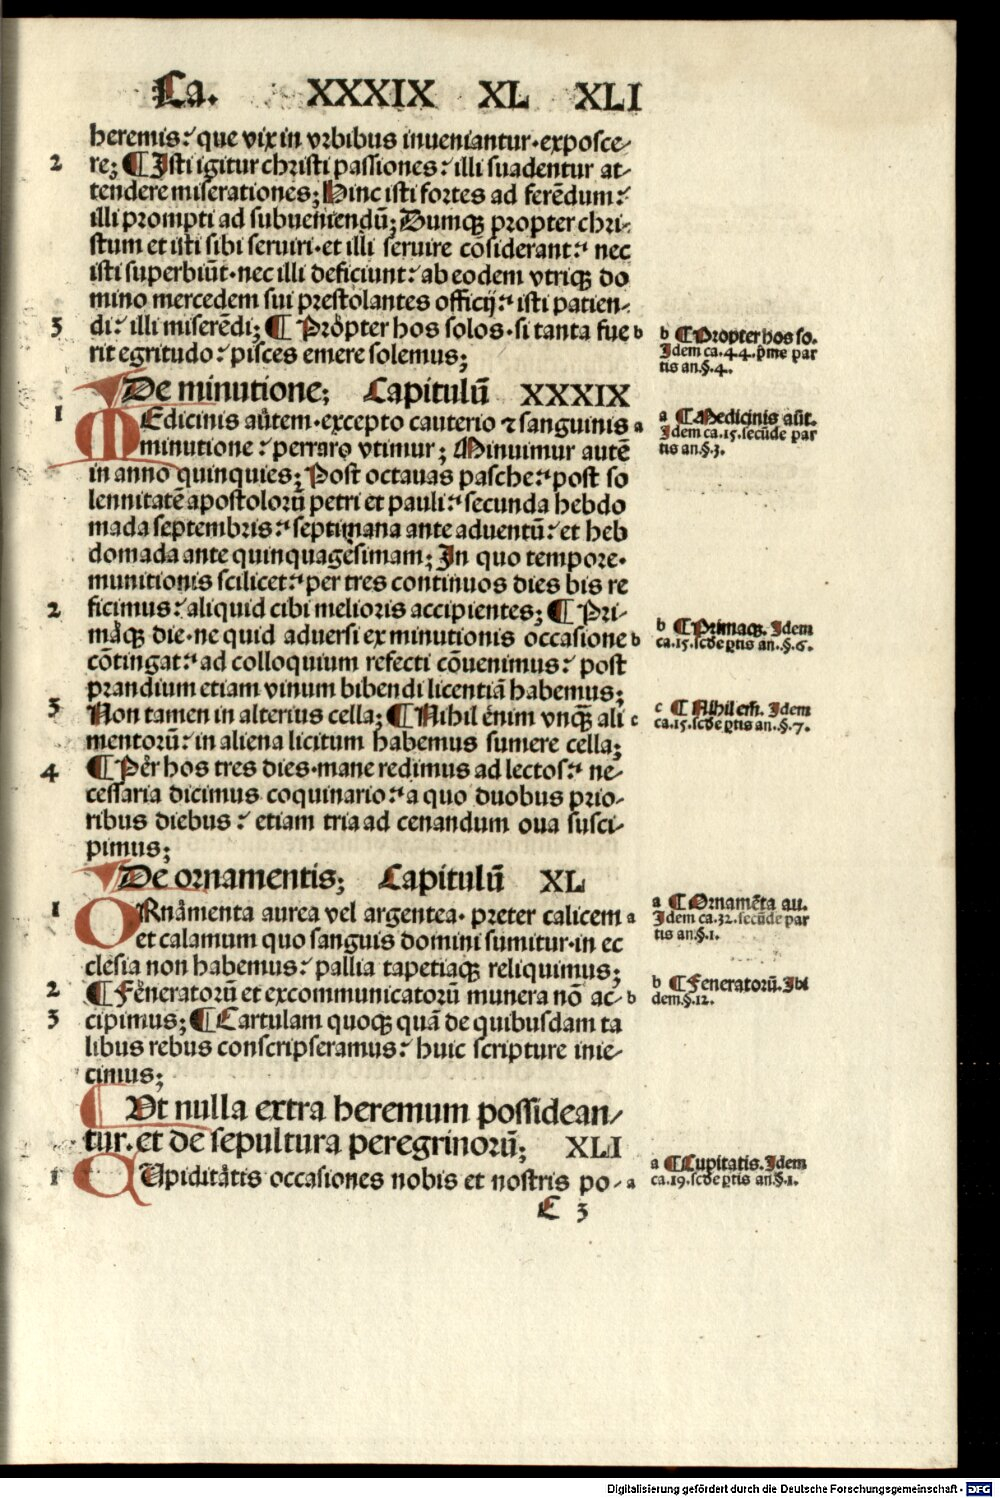 Ca. XXXIX XL XLI
heremis: que vix in vrbibus inueniantur·exposce⸗
2 re; ¶ Isti igitur christi passiones: illi suadentur at⸗
tendere miserationes; Hinc isti fortes ad ferēdum:
illi prompti ad subueniendū; Dumqꝫ propter chri⸗
stum et isti sibi seruiri·et illi seruire cōsiderant: nec
isti superbiūt·nec illi deficiunt: ab eodem vtriqꝫ do
mino mercedem sui prestolantes officij: isti patien⸗
3 di: illi miserēdi; ¶ Propter hos solos·si tanta fue b
rit egritudo: pisces emere solemus;
b ¶ Propter hos so.
Idem ca.44.pͥme par
tis an.§.4.
De minutione; Capitulū XXXIX
1 MEdicinis autem·excepto cauterio ⁊ sanguinis a
minutione: perraro vtimur; Minuimur autē
in anno quinquies; Post octauas pasche: post so
lennitatē apostolorū petri et pauli: secunda hebdo
mada septembris: septimana ante aduentū: et heb
domada ante quinquagesimam; In quo tempore·
munitionis scilicet: per tres continuos dies bis re
2 ficimus: aliquid cibi melioris accipientes; ¶ Pri⸗
maqꝫ die·ne quid aduersi ex minutionis occasione b
cōtingat: ad colloquium refecti cōuenimus: post
prandium etiam vinum bibendi licentiā habemus;
3 Non tamen in alterius cella; ¶ Nihil enim vnqꝫ ali c
mentorū: in aliena licitum habemus sumere cella;
4 ¶ Per hos tres dies·mane redimus ad lectos: ne⸗
cessaria dicimus coquinario: a quo duobus prio⸗
ribus diebus: etiam tria ad cenandum oua susci⸗
pimus;
a ¶ Medicinis aūt.
Idem ca.15.secūde par
tis an.§.3.
b ¶ Primaqꝫ. Idem
ca.15.scd̄e ꝑtis an.§.6.
c ¶ Nihil em̄. Idem
ca.15.scd̄e ꝑtis an.§.7.
De ornamentis; Capitulū XL
1 ORnamenta aurea vel argentea·preter calicem a
et calamum quo sanguis domini sumitur·in ec
clesia non habemus: pallia tapetiaqꝫ reliquimus;
2 ¶ Feneratorū et excommunicatorū munera nō ac⸗ b
3 cipimus; ¶ Cartulam quoqꝫ quā de quibusdam ta
libus rebus conscripseramus: huic scripture inie⸗
cimus;
a ¶ Ornamēta au.
Idem ca.32.secūde par
tis an.§.1.
b ¶ Feneratorū. Ibi
dem.§.12.
¶ Vt nulla extra heremum possidean⸗
tur.et de sepultura peregrinorū; XLI
1 CVpiditatis occasiones nobis et nostris po⸗ a
a ¶ Cupitatis. Idem
ca.19.scd̄e ꝑtis an.§.1.
E 3
Digitalisierung gefördert durch die Deutsche Forschungsgemeinschaft · DFG